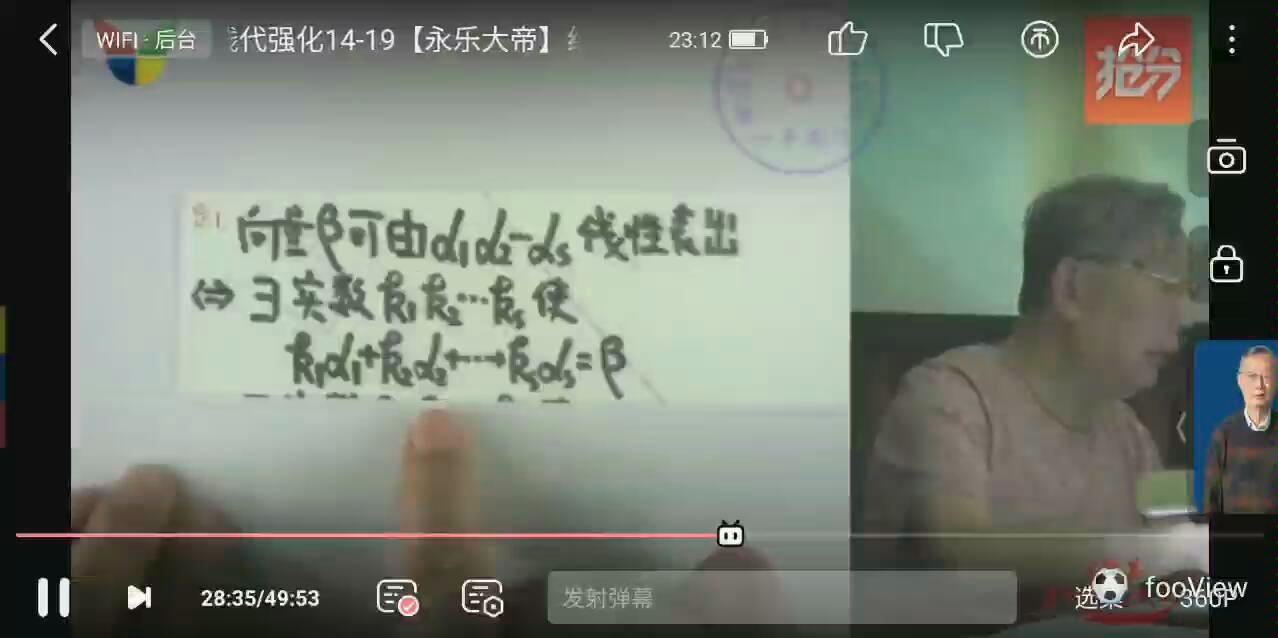 WIFI - 后台
代强化14-19【永乐大帝】
23:12
抢分
向量β可由α₁α₂…αₛ线性表出
⇔ ∃ 实数 k₁ k₂…kₛ 使
k₁α₁+k₂α₂+…+kₛαₛ=β
28:35/49:53
发射弹幕
选集
360P
fooView